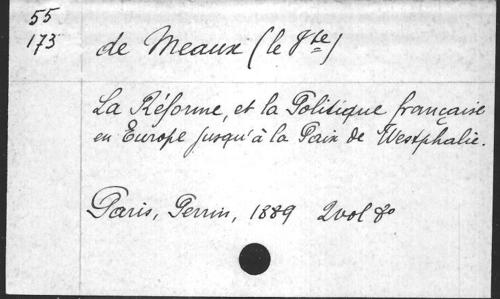 55
173
de Meaux (le Vte)
La Réforme, et la Politique française
en Europe jusqu'à la Paix de Westphalie.
Paris, Perrin, 1889 2 vol 8o